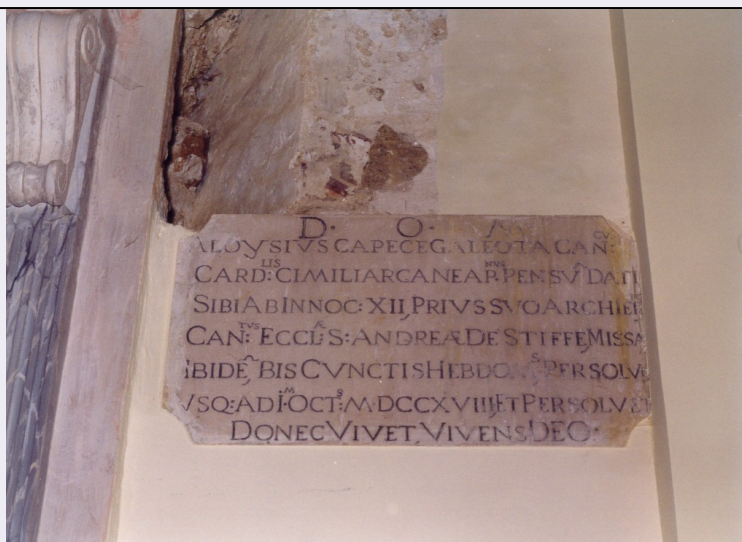 D. O. M
ALOYSIVS CAPECE GALEOTA CAN:CUS
CARD:LIS CIMILIARCA NEAP:NUS PENSV̑ DAT
SIBI AB INNOC: XII, PRIVS SVO ARCHIEP
CAN:TVS ECCL:Æ S: ANDREÆ DE STIFFE, MISSA
IBIDE᷉, BIS CVNCTIS HEBDOM:S PERSOLV
VSQ: AD I:M OCT:S M.DCCXVIIII, ET PERSOLVET
DONEC VIVET, VIVENS DEO: